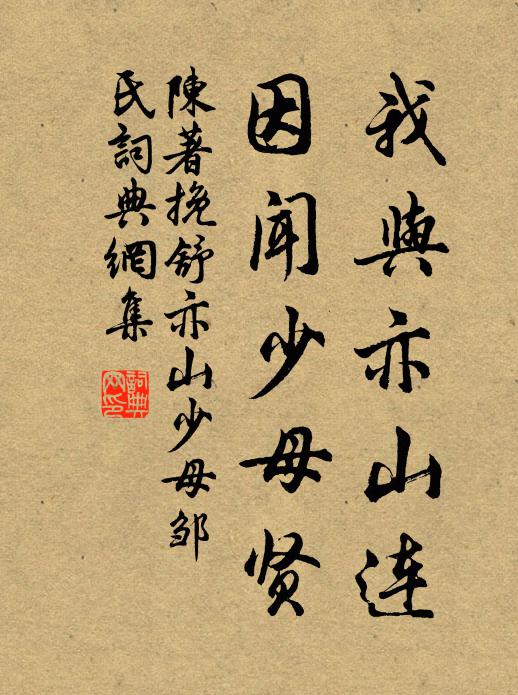 我與亦山連
因聞少母贤
陳著挽舒亦山少母邹
民詞典網集
詞典网印